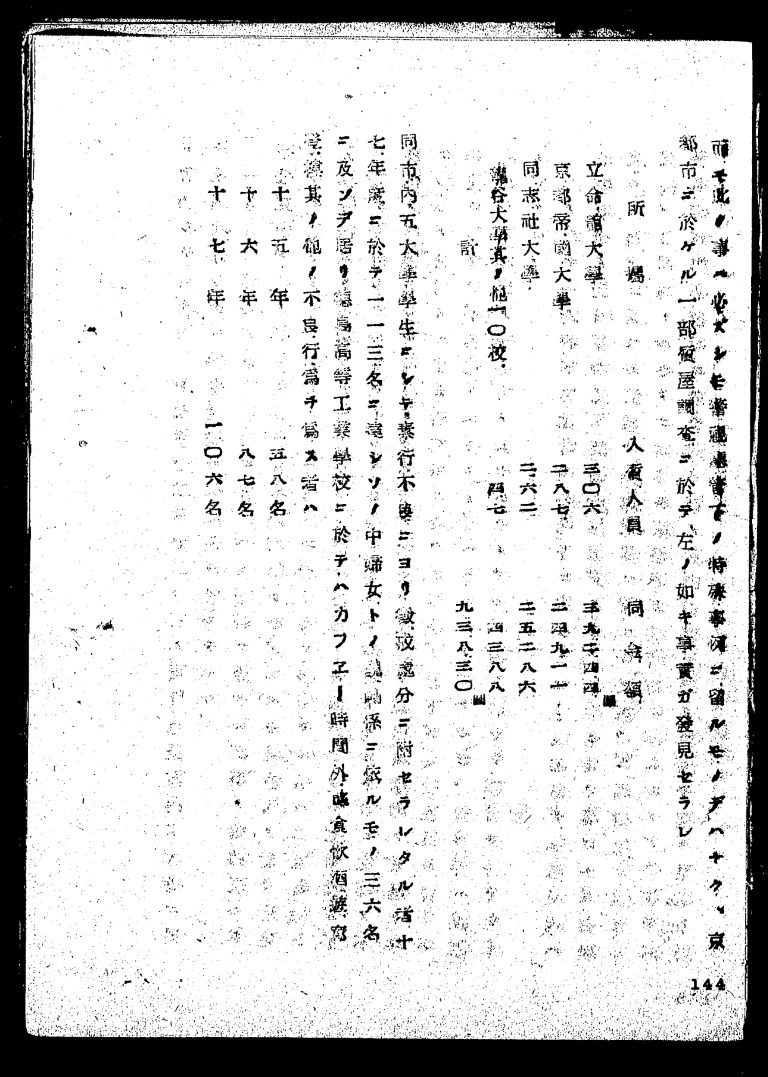 而モ此ノ事ハ必ズシモ警視廳管下ノ特殊事例ニ留ルモノデハナク、京
都市ニ於ケル一部質屋調査ニ於テ左ノ如キ事實ガ發見セラレ
所屬 入質人員 同金額
立命館大學 三〇六 三九二四四圓
京都帝國大學 二八七 二四九一一
同志社大學 二六二 二五二八六
龍谷大學其ノ他一〇校 四七 四三八八
計 九三八三〇圓
同市內五大學學生ニシテ素行不良ニヨリ 處分ニ附セラレタル者十
七年度ニ於テ一一三名ニ達シソノ中婦女トノ 關係ニ依ルモノ三六名
ニ及ンデ居リ德島高等工業學校ニ於テハカフヱー時間外 食飲酒
其ノ他ノ不良行爲ヲ爲ス者ハ
十五年 五八名
十六年 八七名
十七年 一〇六名
144